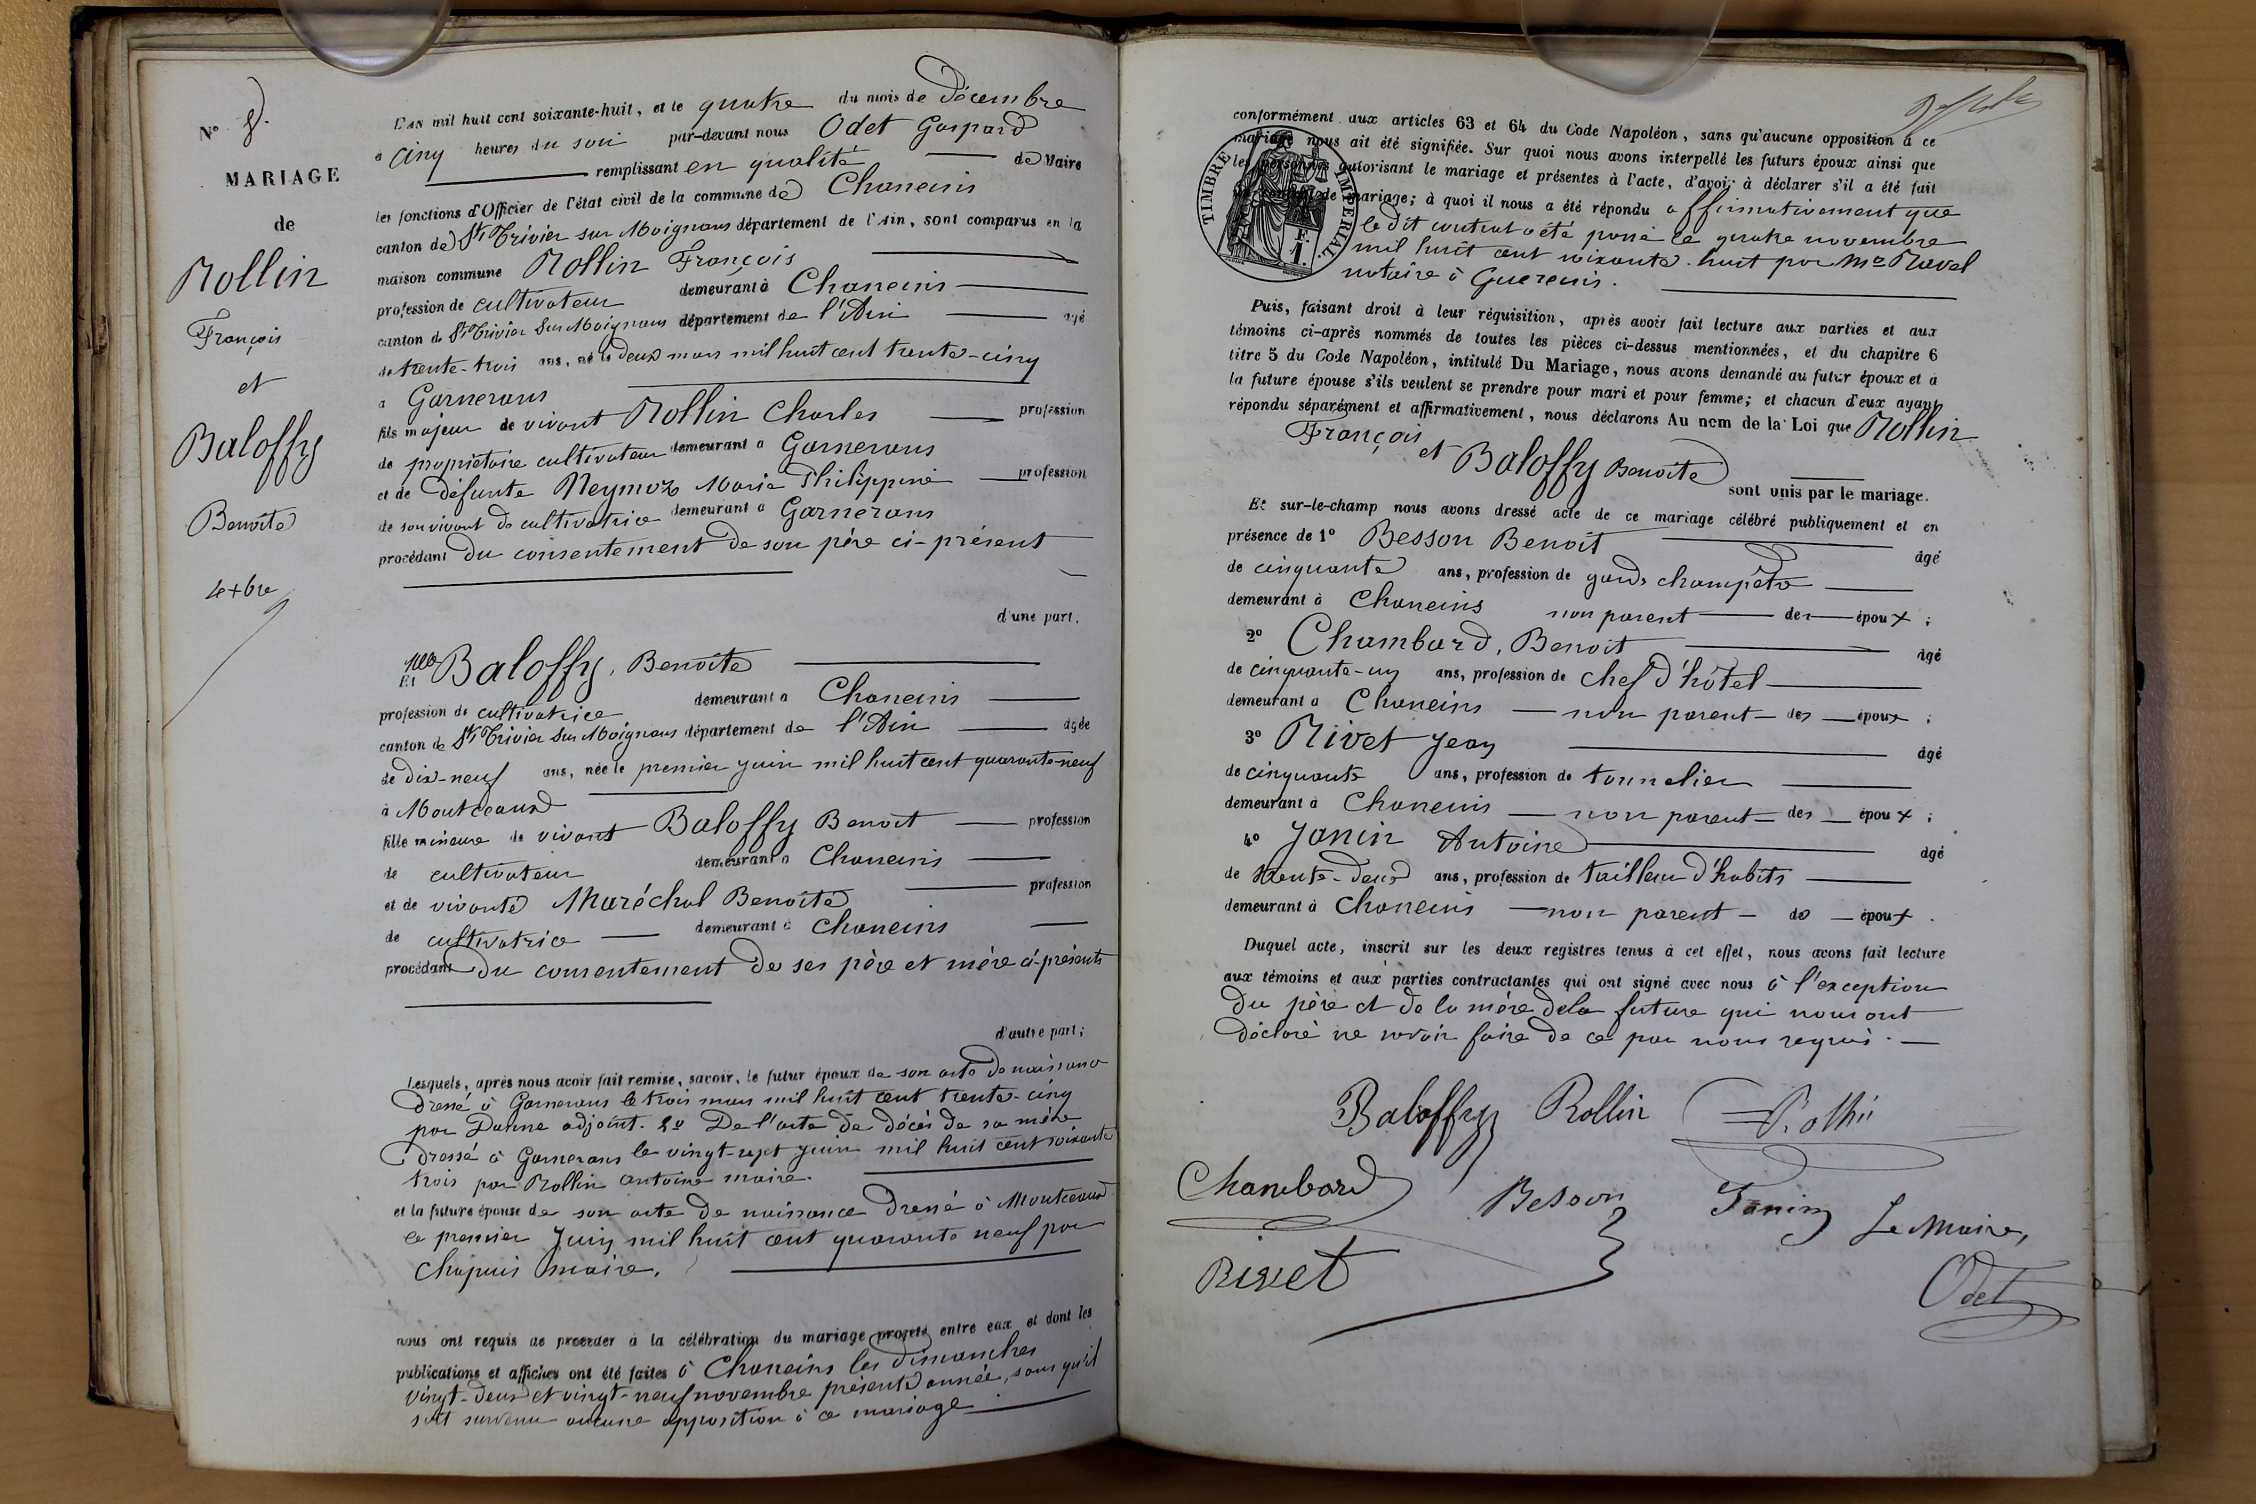 N° 8.
MARIAGE
de
Rollin
François
et
Baloffy
Benoîte
4 Xbre
L'AN mil huit cent soixante-huit, et le quatre du mois de décembre
à cinq heures du soir par-devant nous Odet Gaspard
remplissant en qualité de Maire
les fonctions d'Officier de l'état civil de la commune de Chaneins
canton de St Trivier sur Moignans département de l'Ain, sont comparus en la
maison commune Rollin François
profession de cultivateur demeurant à Chaneins
canton de St Trivier sur Moignans département de l'Ain âgé
de trente-trois ans, né le deux mars mil huit cent trente-cinq
à Garnerans
fils majeur de vivant Rollin Charles profession
de propriétaire cultivateur demeurant à Garnerans
et de défunte Neymoz Marie Philippine profession
de son vivant de cultivatrice demeurant à Garnerans
procédant du consentement de son père ci-présent
d'une part.
Et Mlle Baloffy, Benoîte
profession de cultivatrice demeurant à Chaneins
canton de St Trivier sur Moignans département de l'Ain âgée
de dix-neuf ans, née le premier juin mil huit cent quarante-neuf
à Montceaux
fille mineure de vivant Baloffy Benoit profession
de cultivateur demeurant à Chaneins
et de vivante Maréchal Benoîte profession
de cultivatrice demeurant à Chaneins
procédant du consentement de ses père et mère ci-présents
d'autre part;
Lesquels, après nous avoir fait remise, savoir, le futur époux de son acte de naissance
dressé à Garnerans le trois mars mil huit cent trente-cinq
par adjoint. 2° De l'acte de décès de sa mère
dressé à Garnerans le vingt-sept juin mil huit cent soixante
trois par Rollin Antoine maire.
et la future épouse de son acte de naissance dressé à Montceaux
le premier Juin mil huit cent quarante neuf par
Chapuis maire.
nous ont requis de procéder à la célébration du mariage projeté entre eux et dont les
publications et affiches ont été faites à Chaneins les dimanches
vingt-deux et vingt-neuf novembre présente année, sans qu'il
soit survenu aucune opposition à ce mariage
conformément aux articles 63 et 64 du Code Napoléon, sans qu'aucune opposition à ce
mariage nous ait été signifiée. Sur quoi nous avons interpellé les futurs époux ainsi que
les personnes autorisant le mariage et présentes à l'acte, d'avoir à déclarer s'il a été fait
un contrat de mariage; à quoi il nous a été répondu affirmativement que
le dit contrat a été passé le quatre novembre
mil huit cent soixante-huit par Me Ravel
notaire à Guereins.
TIMBRE IMPERIAL
1 F.
Puis, faisant droit à leur réquisition, après avoir fait lecture aux parties et aux
témoins ci-après nommés de toutes les pièces ci-dessus mentionnées, et du chapitre 6
titre 5 du Code Napoléon, intitulé Du Mariage, nous avons demandé au futur époux et à
la future épouse s'ils veulent se prendre pour mari et pour femme; et chacun d'eux ayant
répondu séparément et affirmativement, nous déclarons Au nom de la Loi que Rollin
François et Baloffy Benoîte
sont unis par le mariage.
Et sur-le-champ nous avons dressé acte de ce mariage célébré publiquement et en
présence de 1° Besson Benoit âgé
de cinquante ans, profession de garde champêtre
demeurant à Chaneins non parent des époux;
2° Chambard, Benoit âgé
de cinquante-un ans, profession de chef d'hôtel
demeurant à Chaneins non parent des époux;
3° Rivet Jean âgé
de cinquante ans, profession de tonnelier
demeurant à Chaneins non parent des époux;
4° Janin Antoine âgé
de trente-deux ans, profession de tailleur d'habits
demeurant à Chaneins non parent des époux.
Duquel acte, inscrit sur les deux registres tenus à cet effet, nous avons fait lecture
aux témoins et aux parties contractantes qui ont signé avec nous à l'exception
du père et de la mère de la future qui nous ont
déclaré ne savoir faire de ce par nous requis.
Baloffy Rollin
Chambard Besson Janin Le Maire,
Rivet Odet